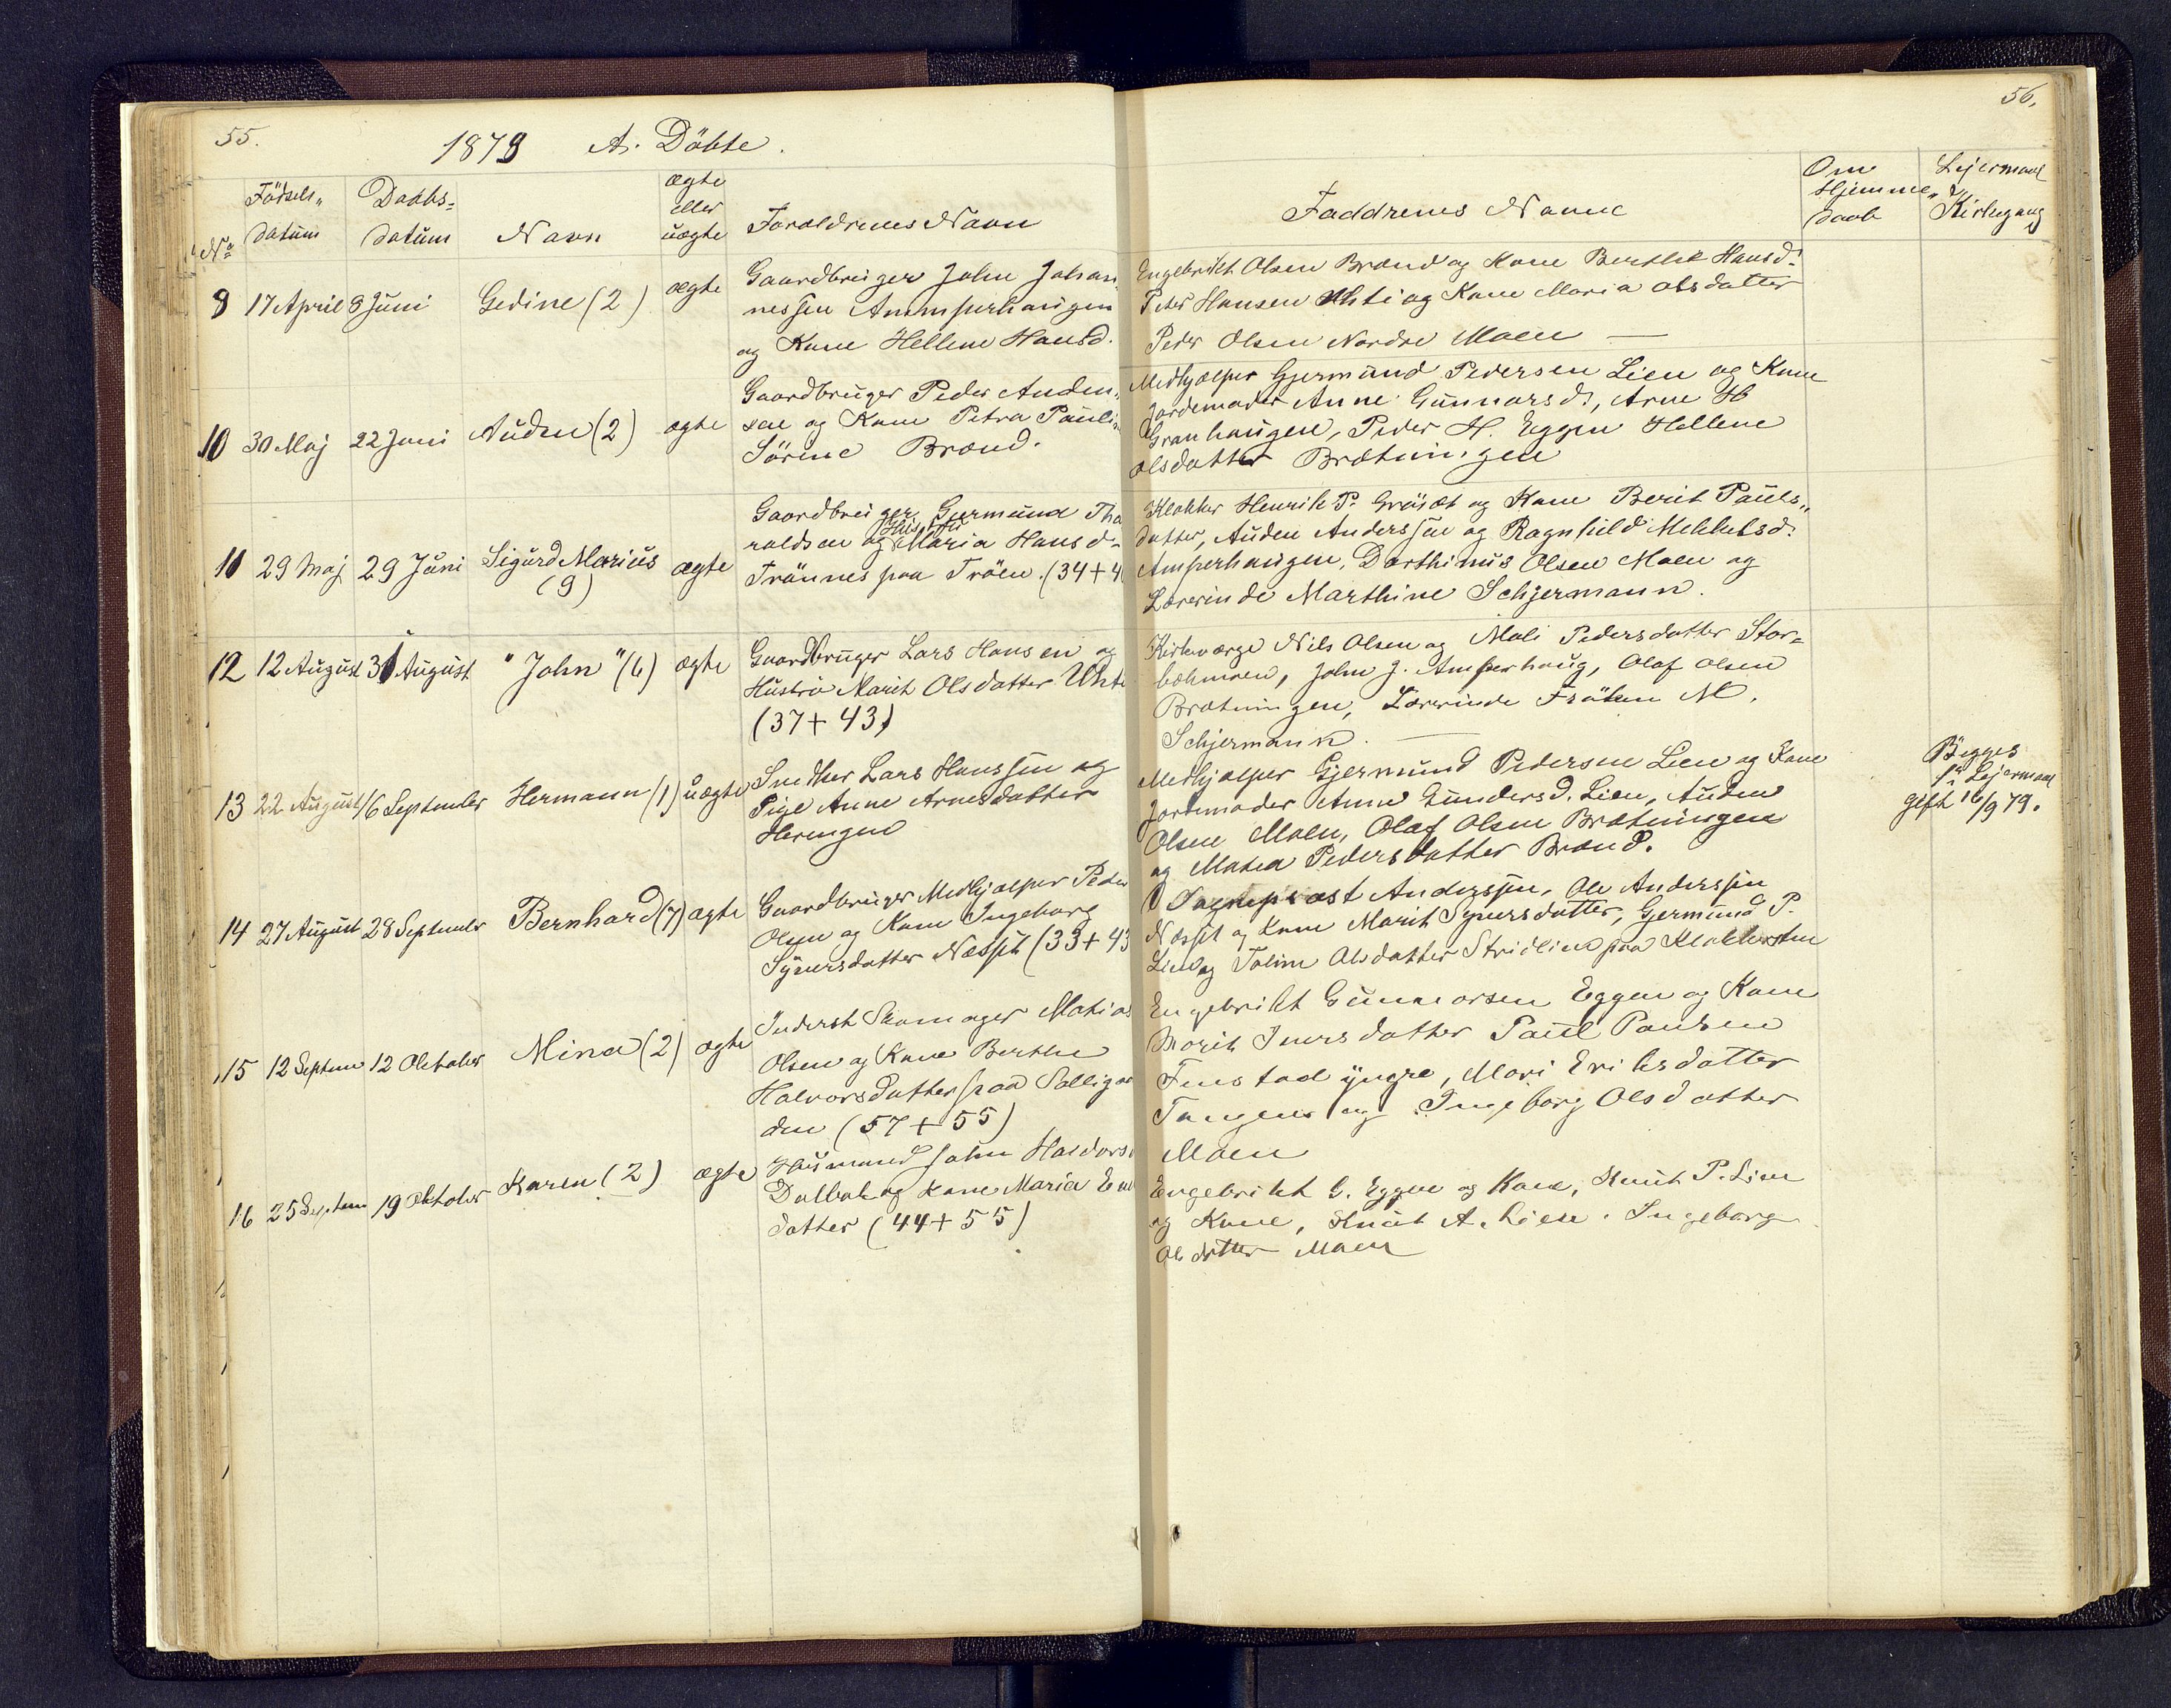 55.
1879 A. Döbte.
Födsels„
Daabs=
ægte
eller
No datum
datum
Navn
uægte
Foraldrenes Navn
9 17 April 8 Juni Gedine (2) ægte
Gaardbruger John Johan
nessen Amperhaugen
og Kone Hellene Hansd.
10 30 Maj 22 Juni Auden (2) ægte
Gaardbruger Peder Auden„
sen og Kone Petra Pauli
Sörine Brænd.
11 29 Maj 29 Juni Sigurd Marius
(9)
ægte
Gaardbruger Gurmund Tho
raldsen og Hustru Maria Hansd
Trönnes paa Tröen. (34+4
12 12 August 31 August "John" (6) ægte
Gaardbruger Lars Hansen og
Hustro Marit Olsdatter
(37+43)
13 22 August 16 September Hermann (1) uægte
Lars Hanssen og
Pige Anne Arnesdatter
14 27 August 28 September Bernhard (7) ægte
Gaardbruger Medhjælper Peder
Olsen og Kone Ingeborg
Syversdatter Næsset (33+43
15 12 Septem 12 Oktober Mina (2) ægte
Inderst Skomager Matias
Olsen og Kone Berthe
Halvorsdatter paa Sollige
den (57+55)
16 25 Septem 19 Oktober Karen (2) ægte
Husmand John Haldors
og Kone Maria
datter (44+55)
56.
Faddrenes Navne
Om
Hjemme„
daab
Lejermaal
&
Kirkegang
Engebrikt Olsen Brænd og Kone Berthe Hansd.
Peder Hansen og Kone Maria Olsdatter
Peder Olsen Nordre Moen —
Medhjælper Gjermund Pedersen Lien og Kone
Jordemoder Anne Gunnarsd., Arne H
Granhaugen, Peder H. Eggen Hellene
Olsdatter Brætningen
Klokker Henrik P. Grüset og Kone Berit Pauls„
datter, Auden Anderssen og Ragnhild Mikkelsd.
Amperhaugen, Dorthinus Olsen Moen og
Lærerinde Marthine Schjermann.
Kirkeværge Nils Olsen og Mali Pedersdatter Stor=
bækmoen, John J. Amperhaug, Olaf Olsen
Brætningen, Lærerinde Fröken M.
Schjermann. —
Medhjælper Gjermund Pedersen Lien og Kone
Jordemoder Anne Gundersd. Lien, Auden
Olsen Moen, Olaf Olsen Brætningen
og Matea Pedersdatter Brænd.
Begges
1ste Lejermaal
gift 16/9 79.
Anderssen, Ole Anderssen
Næsset og Kone Marit Syversdatter, Gjermund P.
Lien og Toline Olsdatter paa
Engebrikt Gunnarsen Eggen og Kone
Marit Iversdatter Paul Paulsen
Finstad yngre, Mari Eriksdatter
Tangen og Ingeborg Olsdatter
Moen
Engebrikt G. Eggen og Kone, Knut P. Lien
og Kone, Knut A. Lien. Ingeborg
Olsdatter Moen